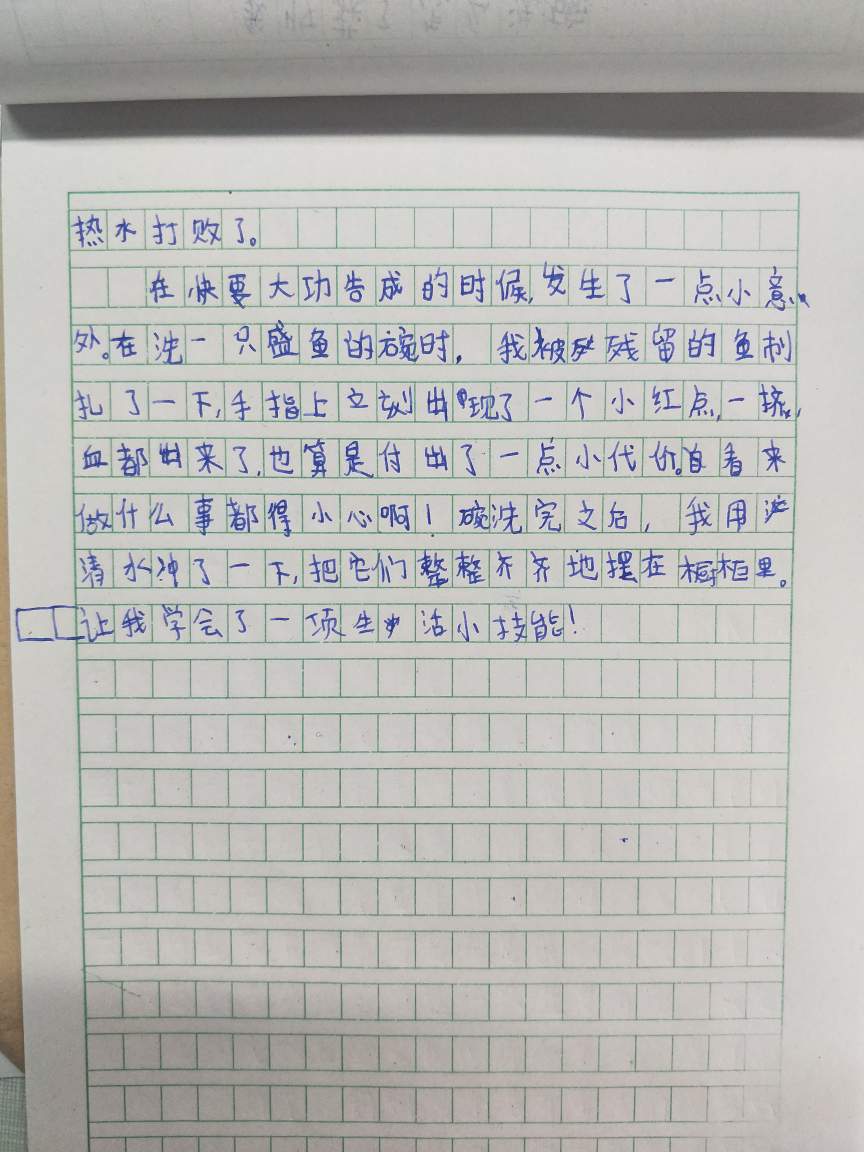 热水打败了。
在快要大功告成的时候,发生了一点小意
外。在洗一只盛鱼的碗时,我被残留的鱼刺
扎了一下,手指上立刻出现了一个小红点,一挤,
血都出来了,也算是付出了一点小代价。看来
做什么事都得小心啊!碗洗完之后,我用
清水冲了一下,把它们整整齐齐地摆在橱柜里。
让我学会了一项生活小技能!